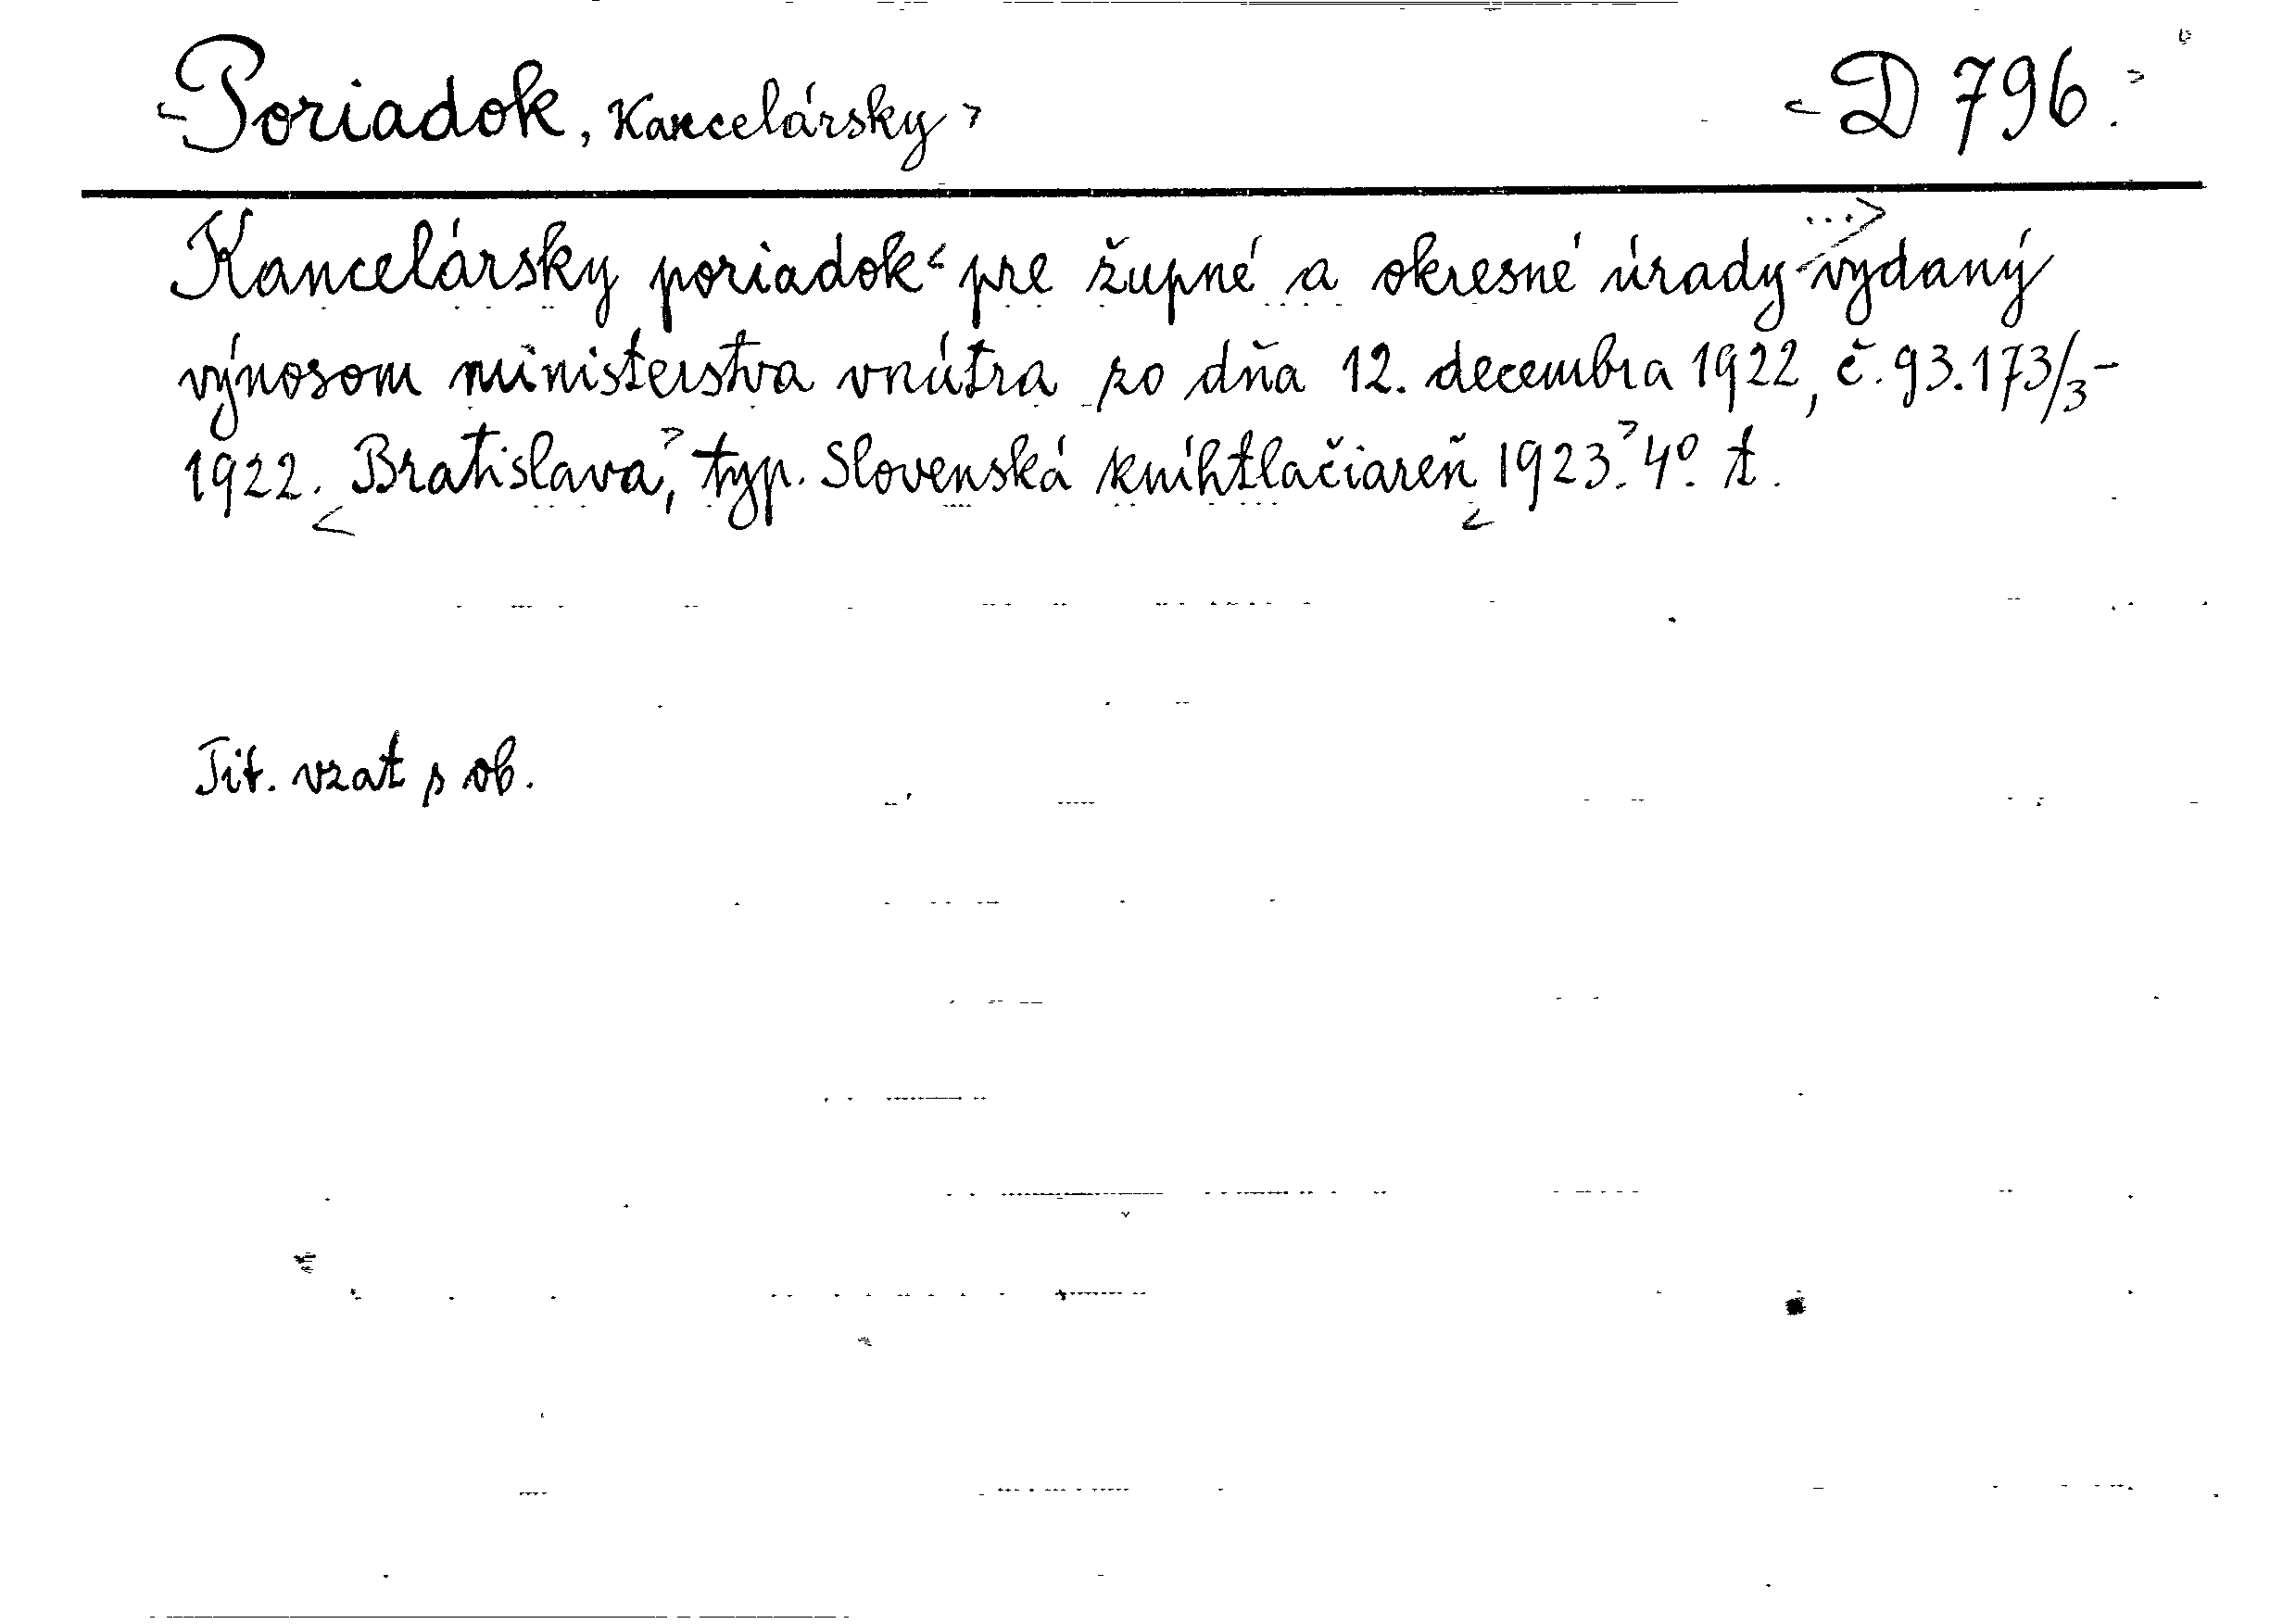 <Poriadok, Kancelársky> <D 796.>
Kancelársky poriadok< pre župné a okresné úrady ...> vydaný
výnosom ministerstva vnútra zo dňa 12. decembra 1922, č. 93.173/3-
1922. <Bratislava,> typ. Slovenská kníhtlačiareň <1923.> 4º. t.
Tit. vzat s ob.